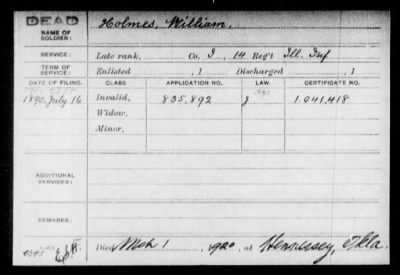 DEAD
NAME OF SOLDIER: Holmes, William.
SERVICE: Late rank, Co. I, 14 Reg't Ill. Inf
TERM OF SERVICE: Enlisted , 1 Discharged , 1
DATE OF FILING. CLASS. APPLICATION NO. LAW. CERTIFICATE NO.
1890, July 16 Invalid, 835,892 J 1.041.418
Widow,
Minor,
ADDITIONAL SERVICES:
REMARKS:
Died Mch 1 1920, at Hennessey, Okla.